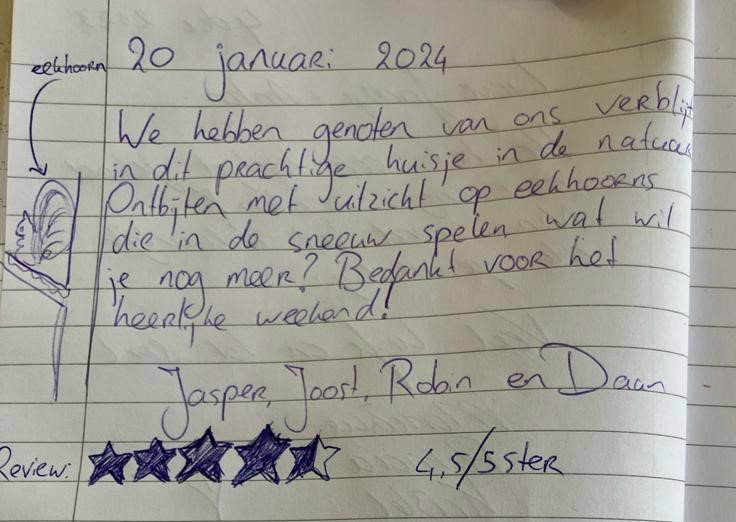 20 januari 2024
eekhoorn
We hebben genoten van ons verblijf
in dit prachtige huisje in de natuur
Ontbijten met uitzicht op eekhoorns
die in de sneeuw spelen wat wil
je nog meer? Bedankt voor het
heerlijke weekend!
Jasper, Joost, Robin en Daan
Review: 4,5/5 ster